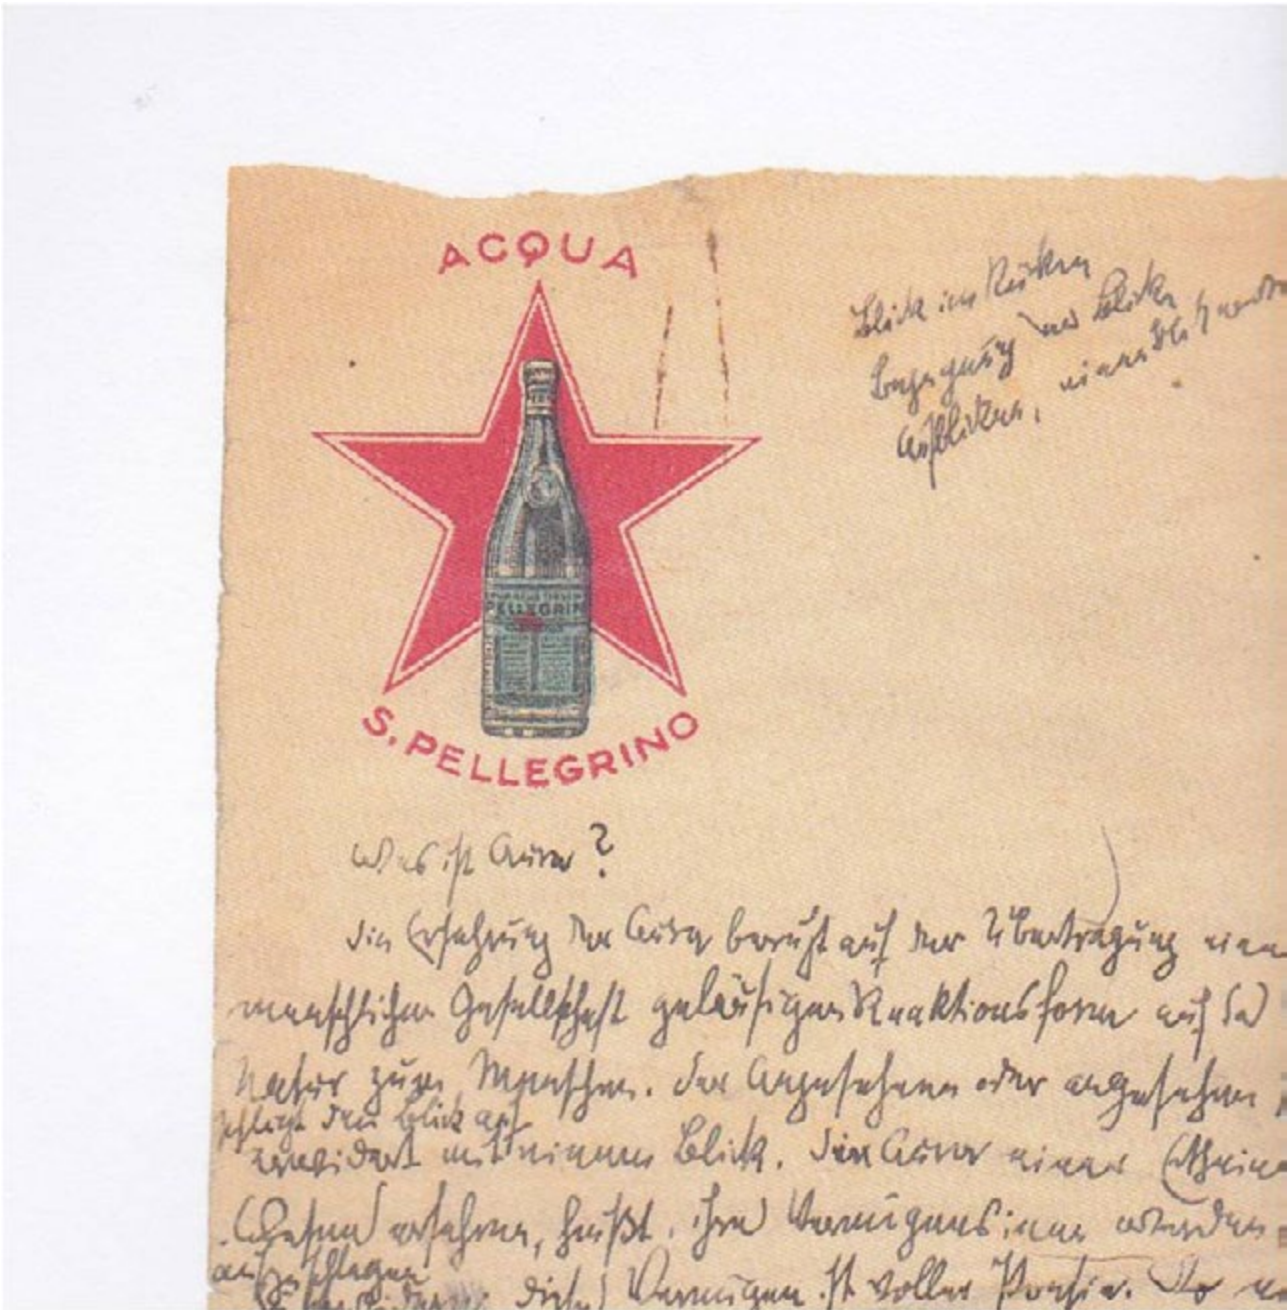 ACQUA
S. PELLEGRINO
PELLEGRIN
Blick im Rücken
Begegnung der Blicke
Aufblicken, eines Blicks
Was ist Aura?
Die Erfahrung der Aura beruht auf der Übertragung einer
menschlichen Gesellschaft geläufigen Reaktionsform auf das
Natur zum Menschen. Der Angesehene oder angesehen
schlägt den Blick auf
erwidert mit einem Blick. Die Aura einer Erschein
Wesens erfahren, heißt, ihres Vermögens inne werden
aufzuschlagen
dieses Vermögen ist voller Poesie.